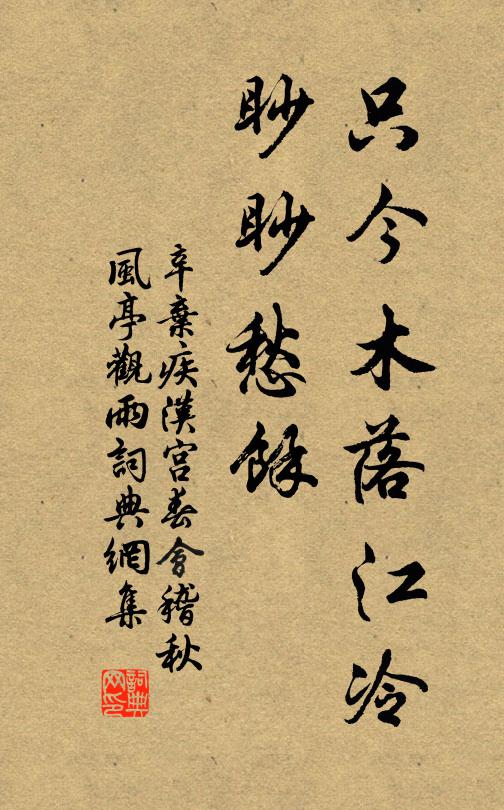 只今木落江冷
眇眇愁餘
辛棄疾漢宮春會稽秋
風亭觀雨詞典網集
詞典
网印